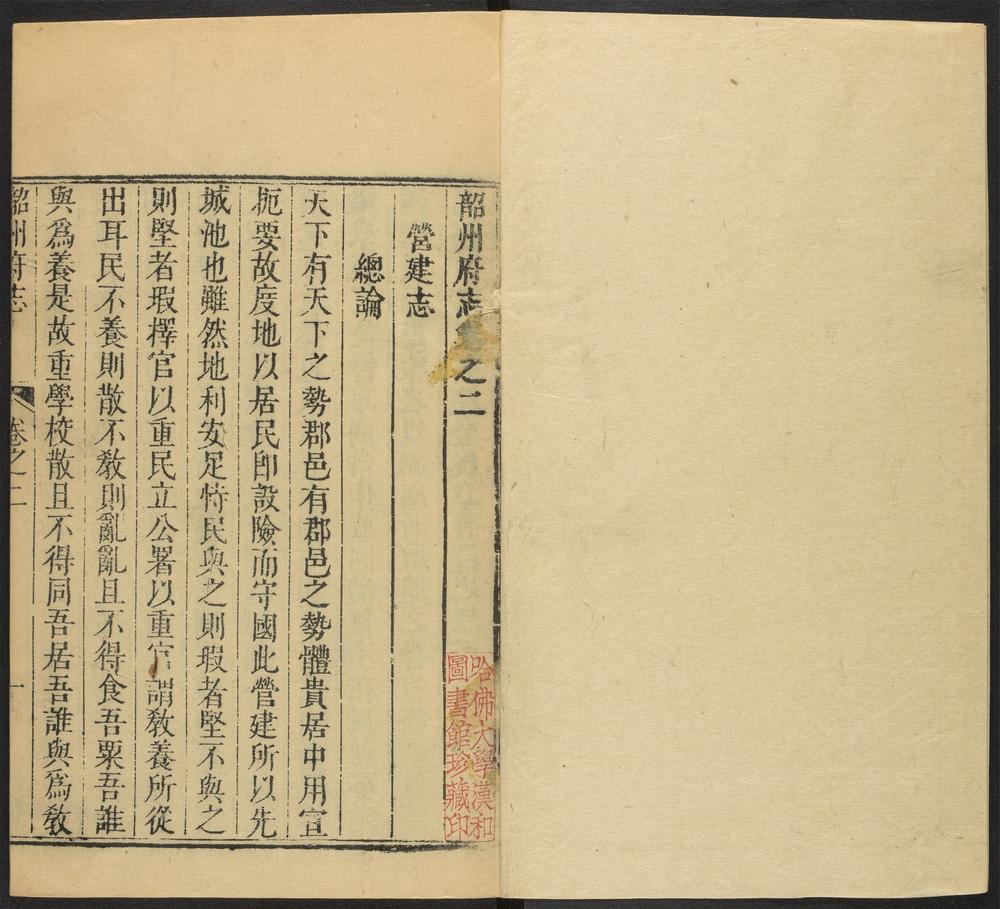 韶州府志卷之二
營建志
總論
天下有天下之勢郡邑有郡邑之勢體貴居中用宜
扼要故度地以居民即設險而守國此營建所以先
城池也雖然地利安足恃民與之則瑕者堅不與之
則堅者瑕擇官以重民立公署以重官謂教養所從
出耳民不養則散不教則亂亂且不得食吾粟吾誰
與爲養是故重學校散且不得同吾居吾誰與爲教
韶州府志
卷之二
一
哈佛大學漢和
圖書館珍藏印